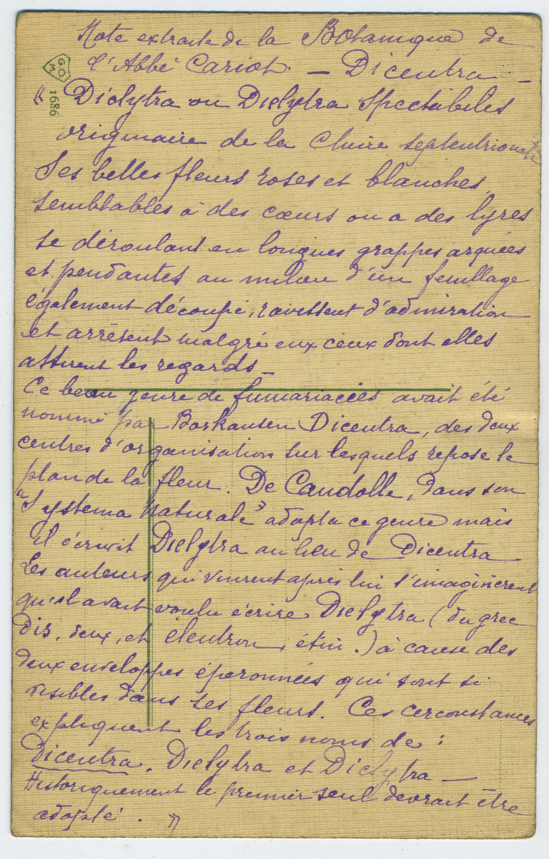 Note extraite de la Botanique de
l'Abbé Cariot. — Dicentra —
G.O.M
1686
« Diclytra ou Dielytra Spectabiles
originaire de la Chine septentrionale
Ses belles fleurs roses et blanches,
semblables à des cœurs ou a des lyres
se déroulant en longues grappes arquées
et pendantes au milieu d'un feuillage
également découpé, ravissent d'admiration
et arrêtent malgré eux ceux dont elles
attirent les regards —
Ce beau genre de fumariacées avait été
nommé par Borkausen Dicentra, des deux
centres d'organisation sur lesquels repose le
plan de la fleur. De Candolle, dans son
"Systema naturale" adopta ce genre mais
il écrivit Dielytra au lieu de Dicentra
Les auteurs qui vinrent après lui s'imaginèrent
qu'il avait voulu écrire Dielytra (du grec
Dis, deux, et elentron, étui.) à cause des
deux enveloppes éperonnées qui sont si
visibles dans ses fleurs. Ces cerconstances
expliquent les trois noms de :
Dicentra, Dielytra et Diclytra —
Historiquement le premier seul devrait être
adopté. »